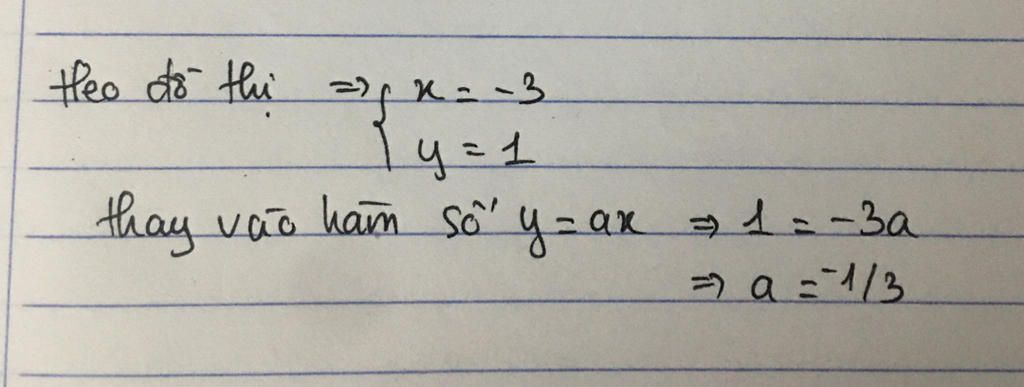 theo đồ thị => { x = -3
y = 1
thay vào hàm số y = ax => 1 = -3a
=> a = -1/3